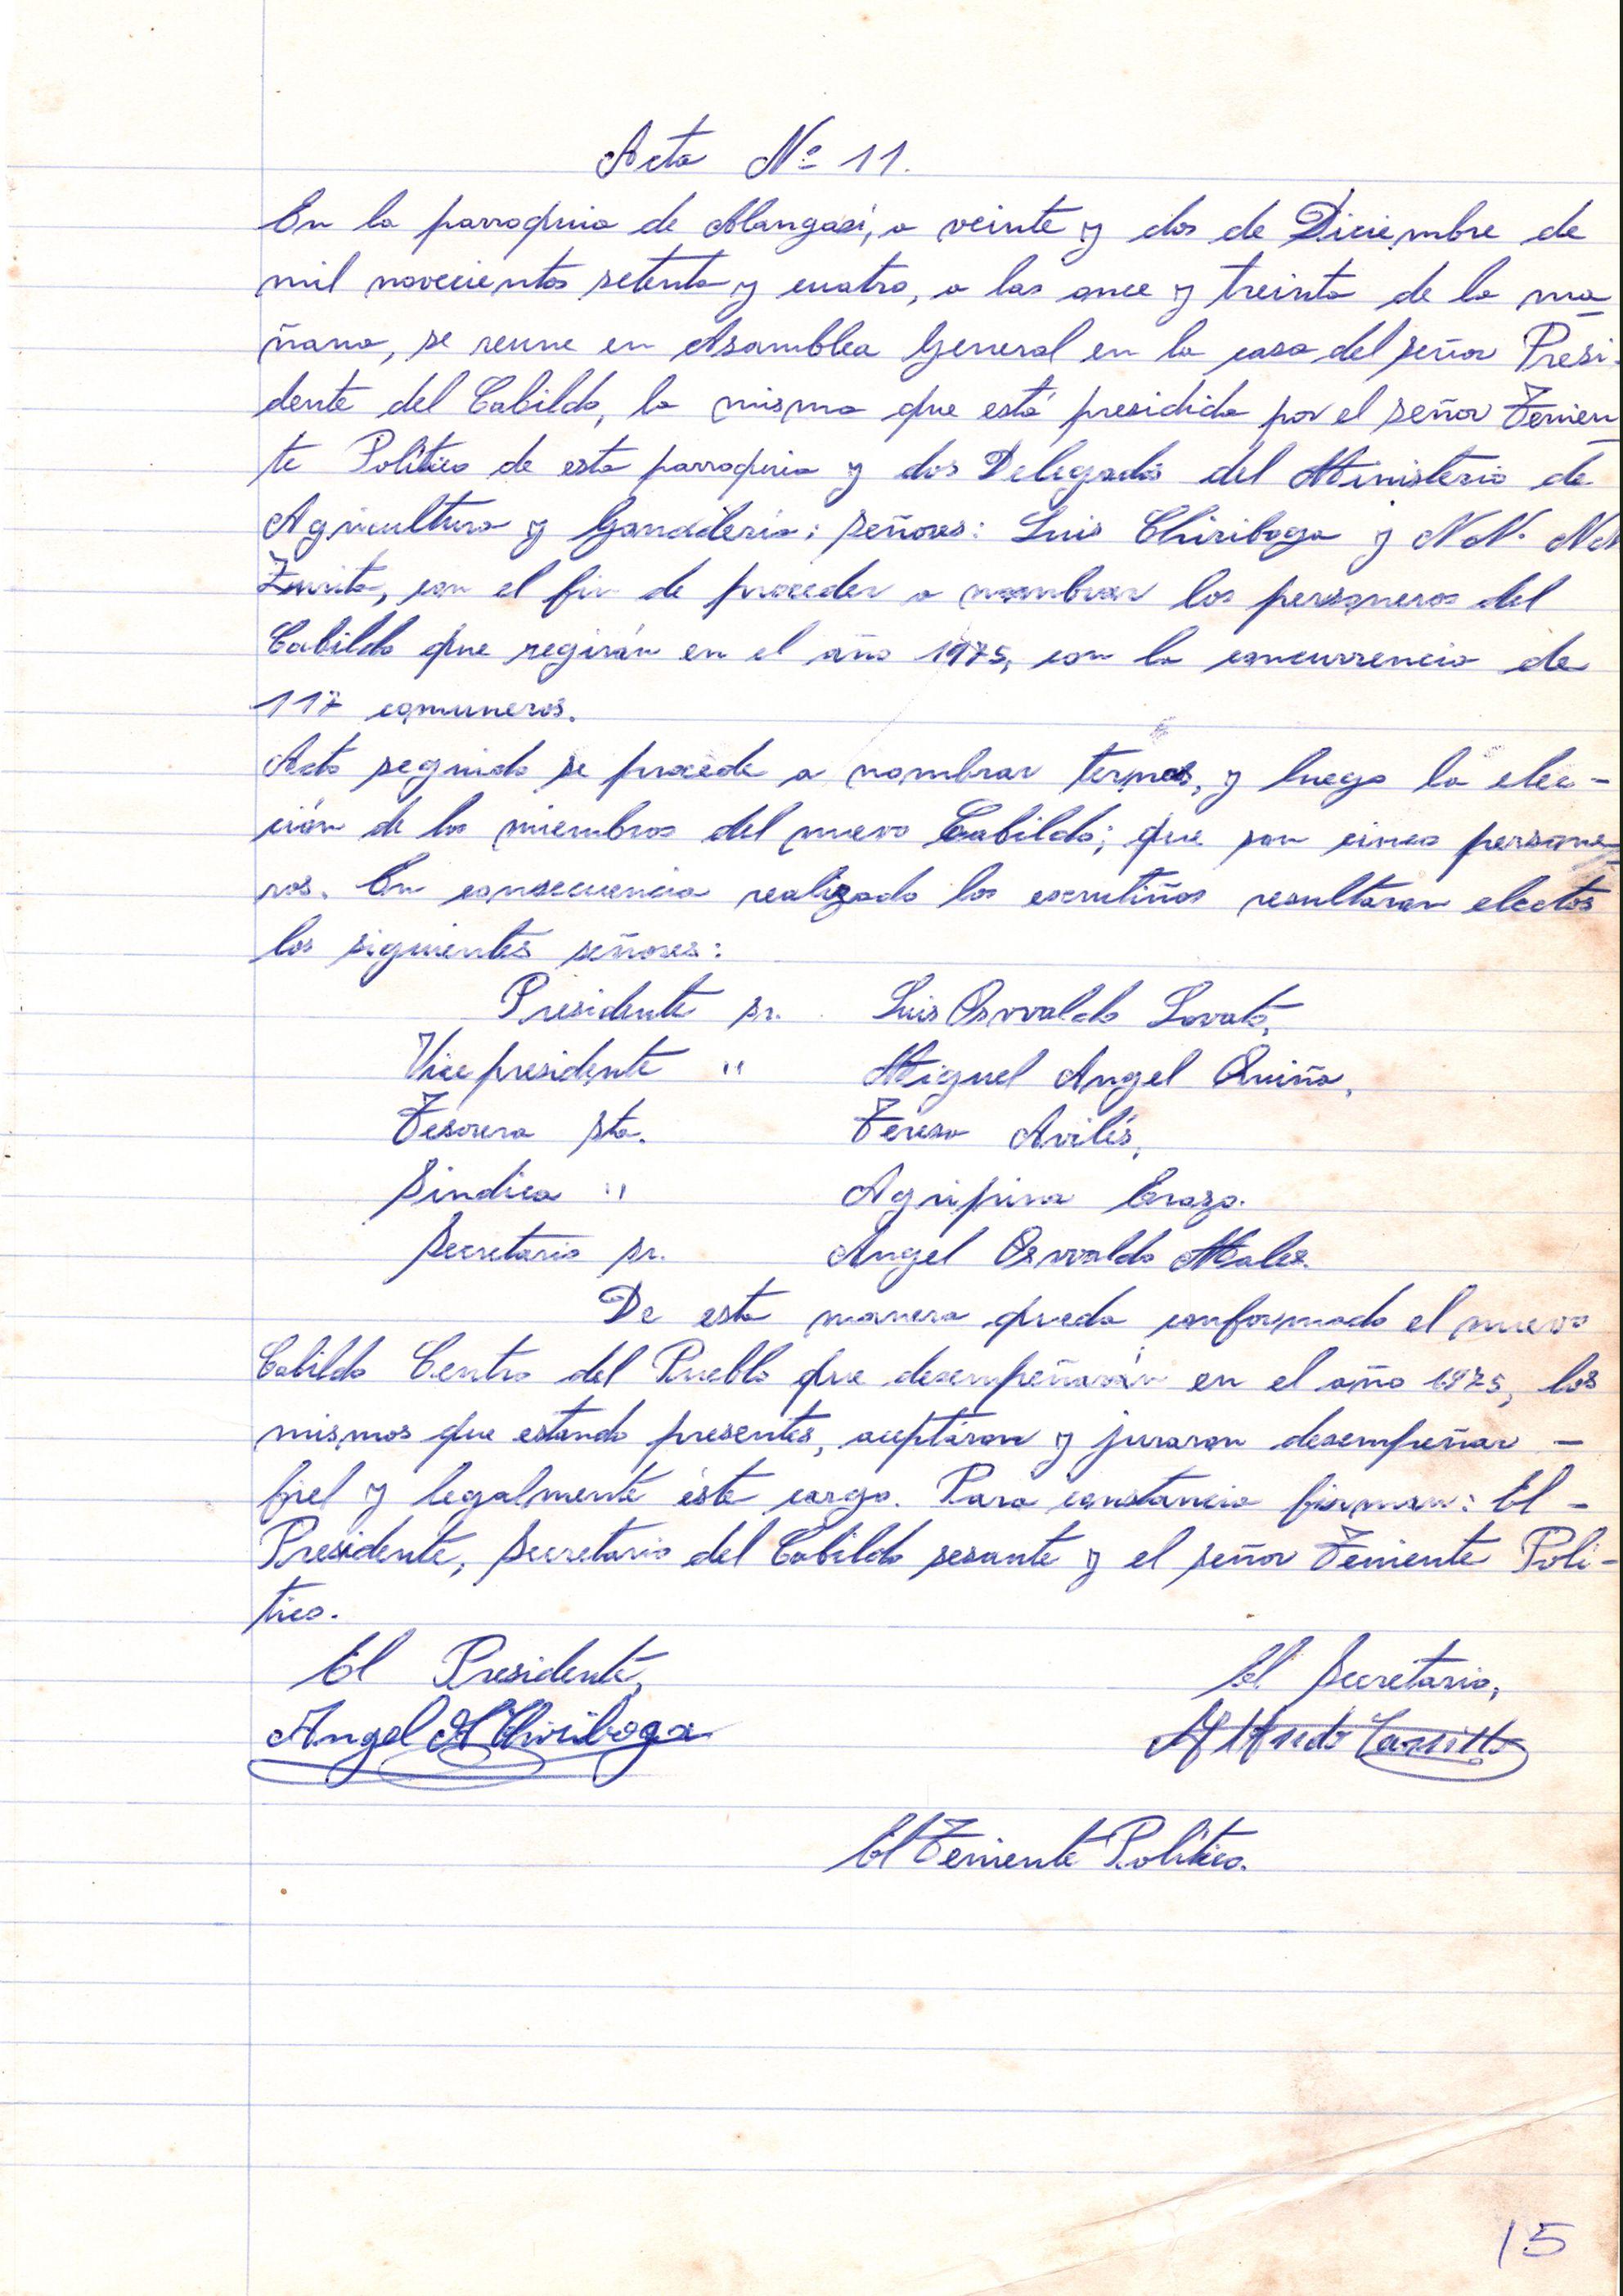 Acta Nº 11.
En la parroquia de Alangasí, a veinte y dos de Diciembre de
mil novecientos setenta y cuatro, a las once y treinta de la ma
ñana, se reune en Asamblea General en la casa del señor Presi-
dente del Cabildo, la misma que está presidida por el señor Tenien
te Político de esta parroquia y dos Delegados del Ministerio de
Agricultura y Ganadería; señores: Luis Chiriboga y N.N. NN
Zurita, con el fin de proceder a nombrar los personeros del
Cabildo que regirán en el año 1975, con la concurrencia de
117 comuneros.
Acto seguido se procede a nombrar ternas, y luego la elec-
ción de los miembros del nuevo Cabildo; que son cinco persone
ros. En consecuencia realizado los escrutiños resultaron electos
los siguientes señores:
Presidente sr. Luis Osvvaldo Lovato,
Vicepresidente " Miguel Angel Quiña,
Tesorera sta. Teresa Avilés,
Síndica " Agripina Erazo.
Secretario sr. Angel Osvvaldo Males.
De esta manera queda conformado el nuevo
Cabildo Centro del Pueblo que desempeñarán en el año 1975, los
mismos que estando presentes, aceptaron y juraron desempeñar -
fiel y legalmente éste cargo. Para constancia firman: El -
Presidente, Secretario del Cabildo sesante y el señor Teniente Polí-
tico.
El Presidente, El Secretario,
Angel A Chiriboga Alfredo Carrillo
El Teniente Político.
15